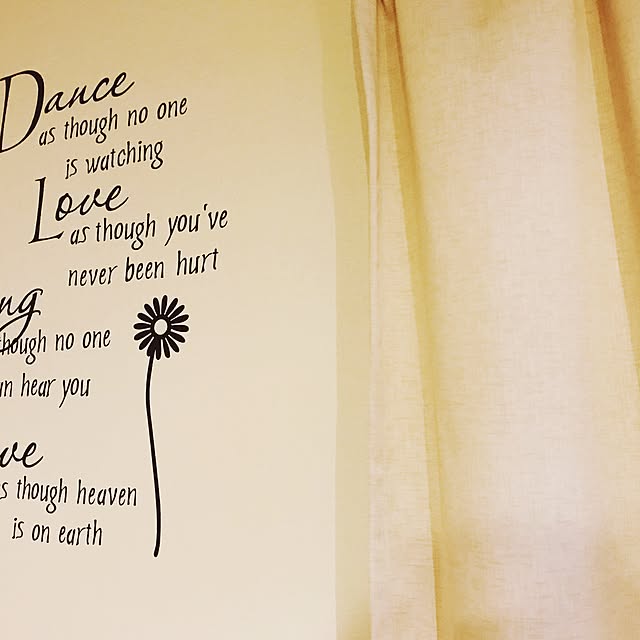 Dance
as though no one
is watching
Love
as though you've
never been hurt
ng
though no one
n hear you
ve
s though heaven
is on earth